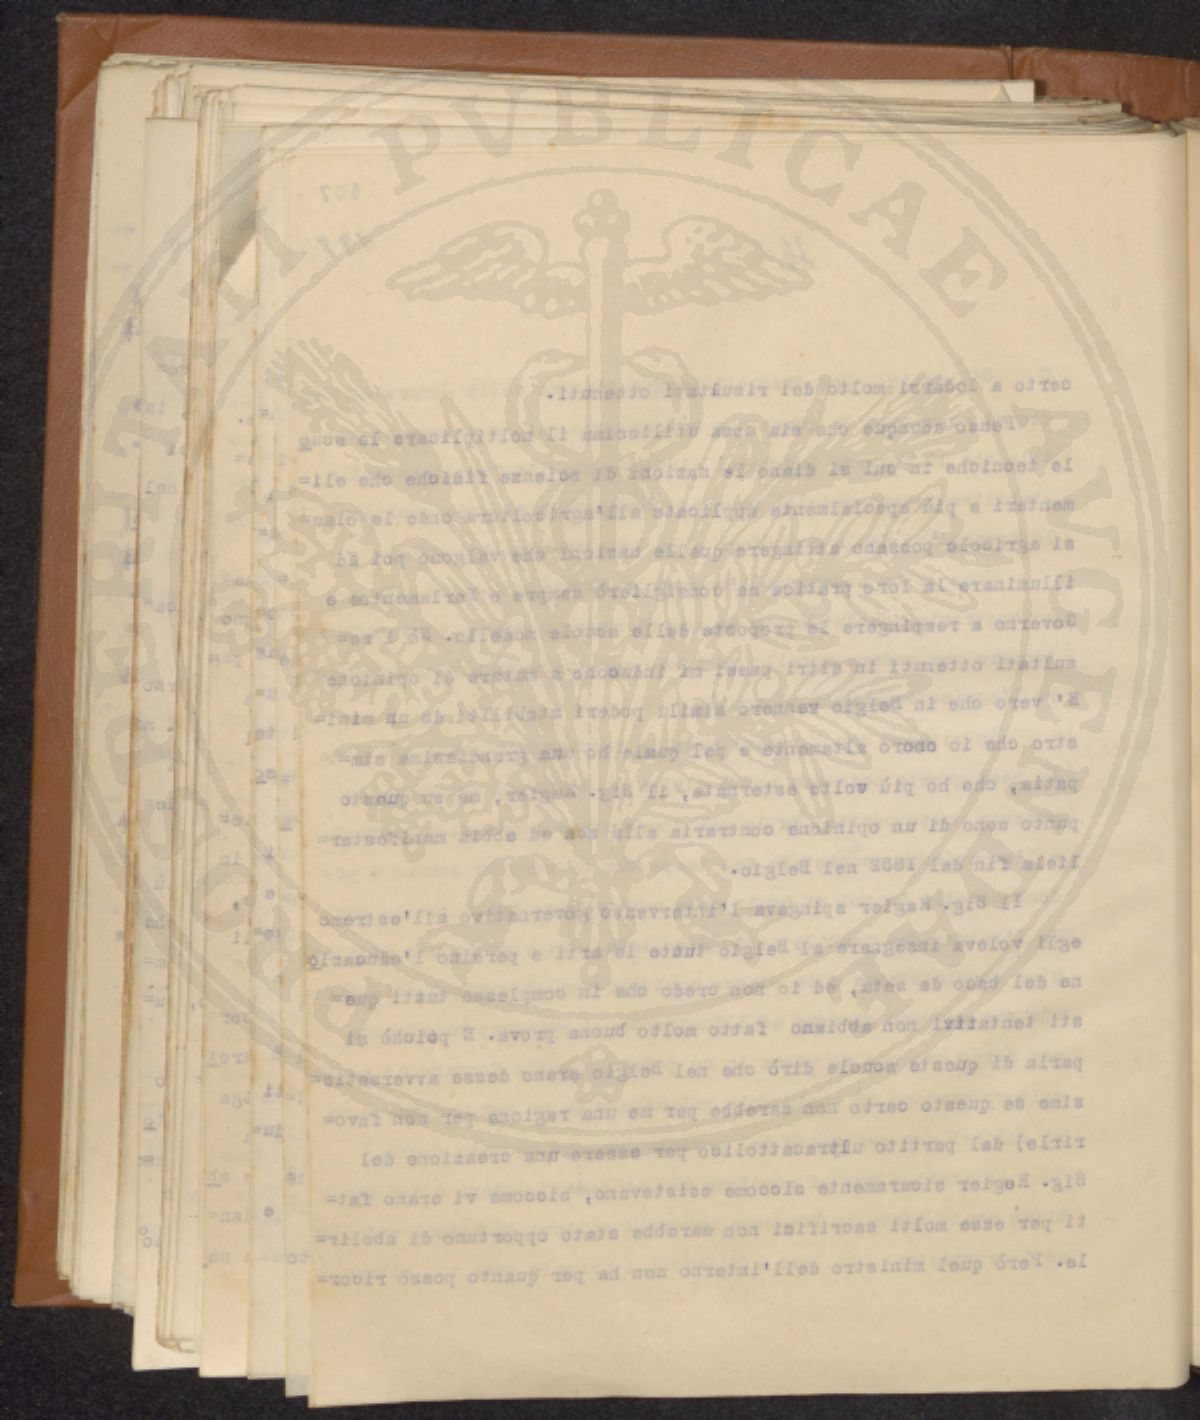 PROSPERITATI PVBLICAE AVGENDAE
407
certo a lodarsi molto dei risultati ottenuti.
Penso adunque che sia cosa utilissima il moltiplicare le scuo
le tecniche in cui si diano le nozioni di scienze fisiche che eli=
mentari e più specialmente applicate all'agricoltura onde le clas=
si agricole possano attingere quelle nozioni che valgono poi ad
illuminare la loro pratica ma consiglierò sempre e Parlamento e
Governo a respingere le proposte delle scuole modello. Nè i re=
sultati ottenuti in altri paesi mi inducono a mutare di opinione
E' vero che in Belgio vennero simili poderi stabiliti da un mini=
stro che io onoro altamente e pel quale ho una grandissima sim=
patia, che ho più volte esternata, il Sig. Rogier, ma su questo
punto sono di un opinione contraria alla sua ed ebbia manifestar=
liela fin dal 1852 nel Belgio.
Il Sig. Rogier spingeva l'intervento governativo all'estremo
egli voleva insegnare al Belgio tutte le arti e persino l'educazio
ne del baco da seta, ed io non credo che in complesso tutti que=
sti tentativi non abbiano fatto molto buona prova. E poichè si
parla di queste scuole dirò che nel Belgio erano desse avversatis=
sime se questo certo non sarebbe per me una ragione per non favo=
rirle) dal partito ultracattolico per essere una creazione del
Sig. Rogier sicuramente siccome esistevano, siccome vi erano fat=
ti per esse molti sacrifizi non sarebbe stato opportuno di abolir=
le. Però quel ministro dell'interno non ha per quanto posso ricor=